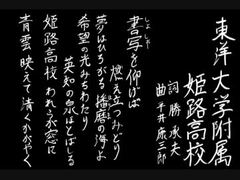 東洋大学附属
姫路高校
詞 勝 承夫
曲 平井康三郎
しょしゃ
書写を仰げば
燃え立つみどり
夢はひろがる 播磨の海よ
希望の光 みちわたり
英知の泉 ほとばしる
姫路高校 われらが窓に
青雲映えて 清くかがやく